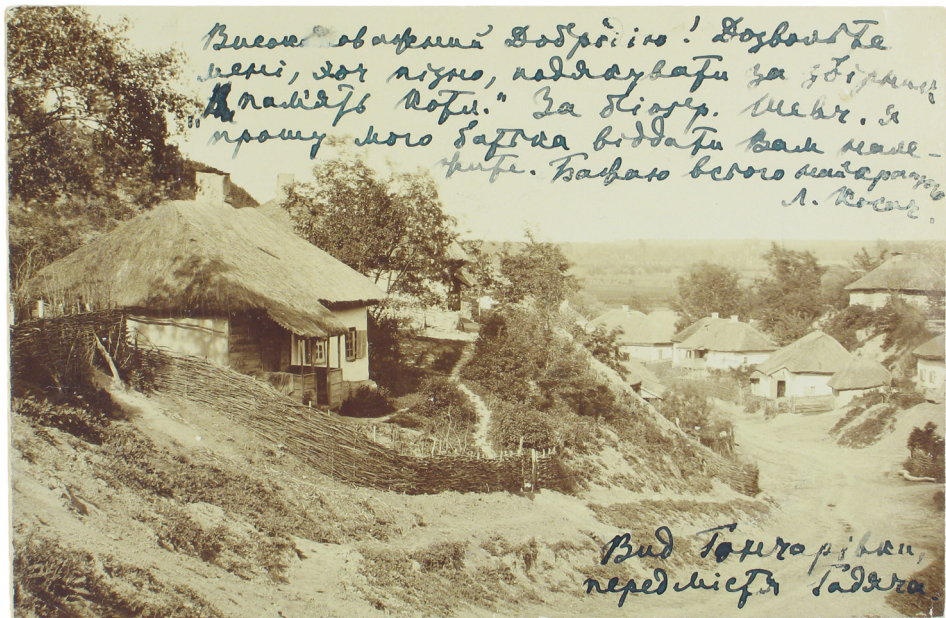 Високоповажний Добрі́ю! Дозвольте
мені, хоч пізно, подякувати за збірник
„На пам'ять Котл." За біогр. Шевч. я
прошу мого батька віддати Вам нале-
жите. Бажаю всього найкращого
Л. Косач.
Вид Гончарівки,
передмістя Гадяча.